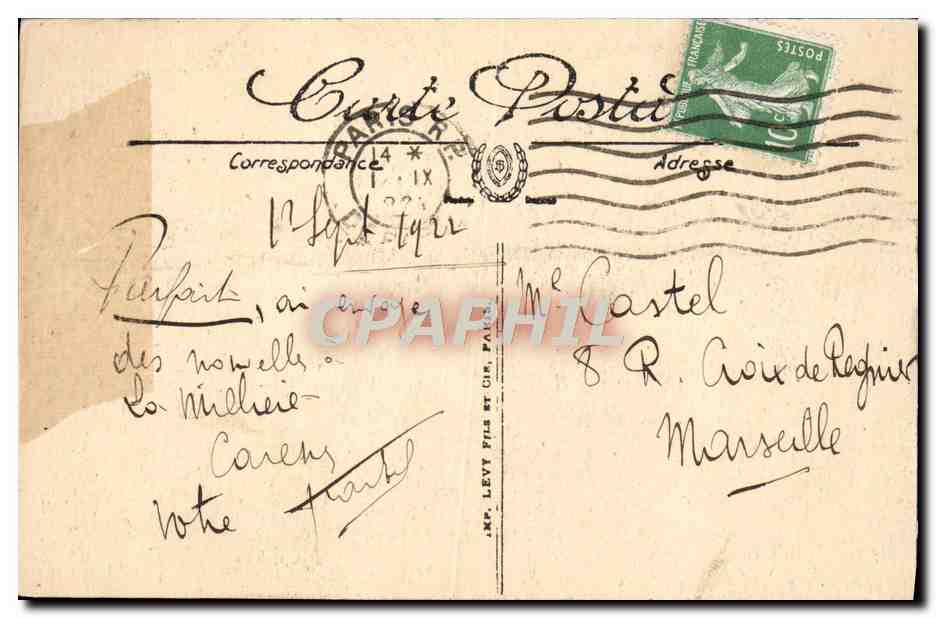 Carte Postale
Correspondance
Adresse
PARIS
14 *
1 · IX
POSTES
FRANÇAISE
10 c
1r Sept 1922
Parfait, ai envoyé
des nouvelles à
La Millière
votre
CPAPHIL
IMP. LEVY FILS ET CIE, PARIS
Me Castel
8 R. Croix de Regnier
Marseille